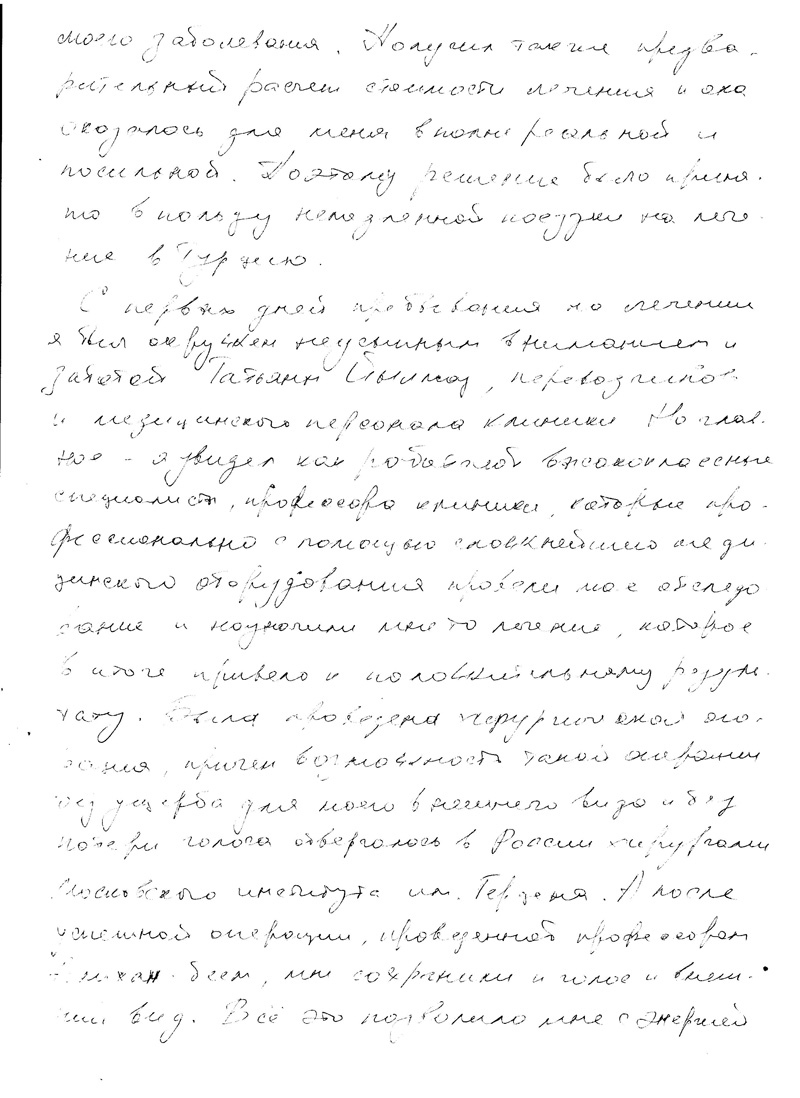 моего заболевания. Получил также предва-
рительный расчет стоимости лечения и она
оказалось для меня вполне реальной и
посильной. Поэтому решение было приня-
то в пользу немедленной поездки на лече-
ние в Турцию.
С первых дней пребывания на лечении
я был окружен неусыпным вниманием и
заботой Татьяны Йылмаз, переводчиков
и медицинского персонала клиники. Но глав-
ное - я увидел как работают высококлассные
специалисты, професора клиники, которые про-
фессионально с помощью сложнейшего меди-
цинского оборудования провели мое обследо
вание и назначили мне то лечение, которое
в итоге привело к положительному резуль-
тату. Была проведена хирургической
причем возможность такой операции
без ущерба для моего внешнего вида и без
потери голоса отвергалось в России хирургами
Московского института им. Герцена. А после
успешной операции, проведенной професором
беем, мне сохранили и голос и внеш-
ний вид. Всё это позволило мне с энергией